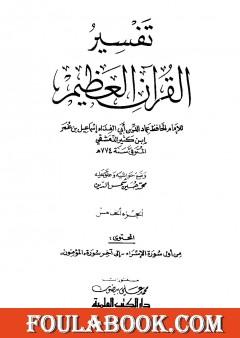 تفسير
القرآن العظيم
للإمام الحافظ عماد الدين أبي الفداء إسماعيل بن عمر
ابن كثير الدمشقي
المتوفى سنة ٧٧٤هـ
وضع حواشيه وعلق عليه
محمد حسين شمس الدين
الجزء الخامس
المحتوى:
من أول سورة الإسراء - إلى آخر سورة المؤمنون
منشورات
محمد علي بيضون
دار الكتب العلمية
FOULABOOK.COM